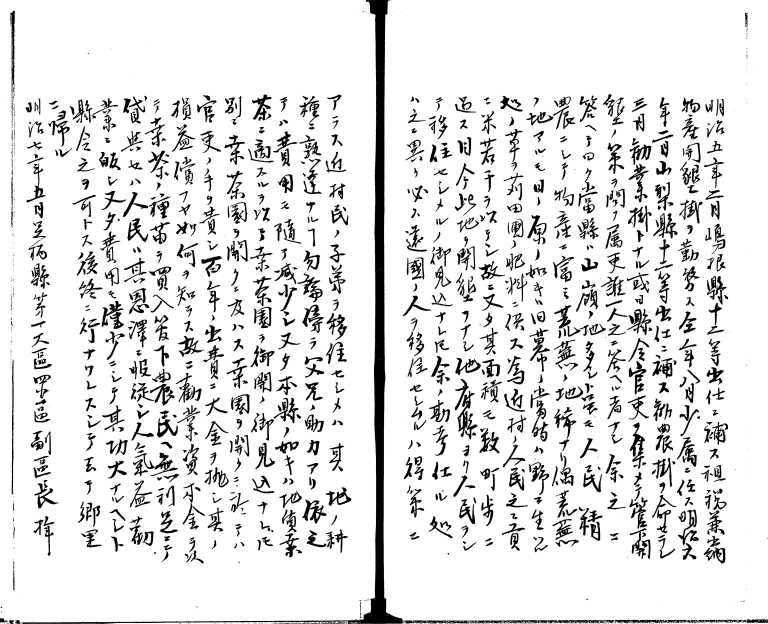 明治五年二月嶋根縣十二等出仕ニ補ス租税兼編
物産開墾掛ヲ勤務ス仝年八月少属ニ任ス明治六
年二月山梨縣十二等出仕ニ補ス勧農掛ヲ命セラレ
三月勧業掛トナル或日縣令官吏ヲ集メテ管下開
墾ノ策ヲ問フ属吏誰一人之ニ答ル者ナシ余之ニ
答ヘテ曰ク當縣ハ山嶺ノ地多シト雖モ人民精
農ニシテ物産ニ富ミ荒蕪ノ地稀ナリ偶荒蕪
ノ地アルモ日ノ原ノ如キハ旧幕ノ當時ハ野ニ生ル
処ノ草ヲ苅田圃ノ肥料ニ供ス為近村ノ人民之ニ貢
ニ米若干ヲ以テシ故ニ又タ其面積モ数町歩ニ
過ス目今此地ヲ開墾ヲナシ他府縣ヨリ人民ヲシ
テ移住セシメルノ御見込ナレ𪜈余ノ勘考仕ル処
ハ之ニ異リ必ス遠國ノ人ヲ移住セシムルハ得策ニ
アラス近村民ノ子弟ヲ移住セシメハ其地ノ耕
種ニ熟達ナルヿ勿論傍ラ父兄ノ助力アリ依之
テハ費用モ隨テ減少シ又タ本縣ノ如キハ地質桑
茶ニ適スルヲ以テ桑茶園ヲ御開ノ御見込ナレ𪜈
別ニ桑茶園ヲ開クニ及ハス桑園ヲ開クニ於テハ
官吏ノ手ヲ費シ百年ノ出費ニ大金ヲ抛シ其ノ
損益償フヤ如何ヲ知ラス故ニ勧業資本金ヲ以
テ桑茶ノ種苗ヲ買入管下農民ヘ無利足ニテ
貸與セハ人民ハ其恩澤ニ服従シ人氣益勧
業ニ皈シ又タ費用モ僅少ニシテ其功大ナルヘシト
縣令之ヲ可トス後終ニ行ナワレスシテ去テ郷里
ニ帰ル
明治七年五月足柄縣第一大區四小區副區長拝